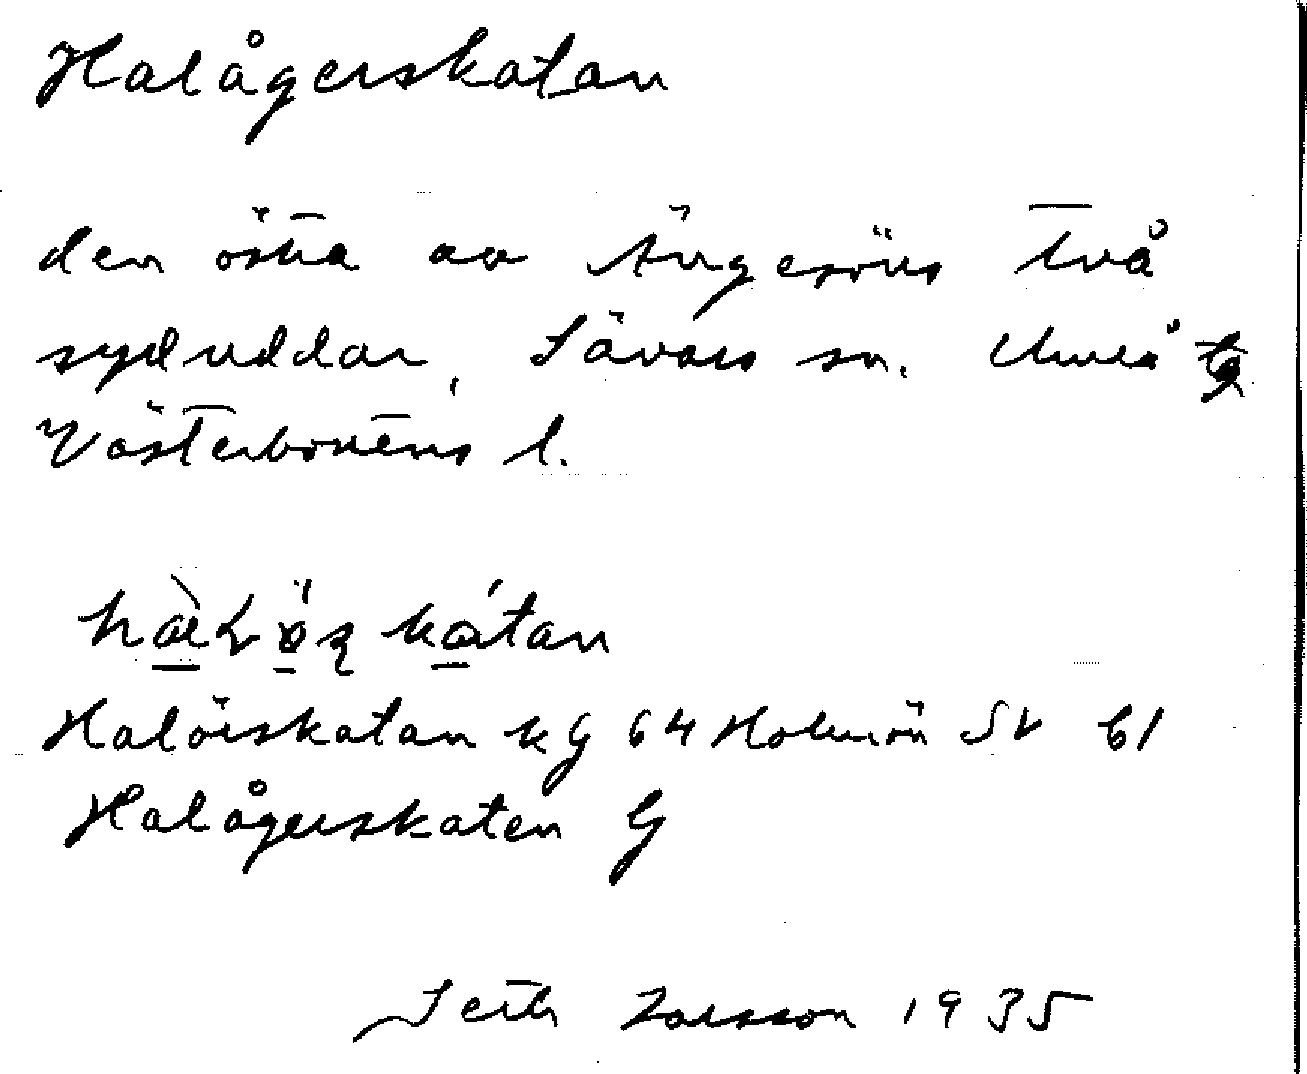 Halågerskatan
den östra av Ängesöns två
syduddar, Sävars sn. Umeå
Västerbottens l.
Halörskatan kg 64 Holmön SV 61
Halågerskaten G
Seth Larsson 1935